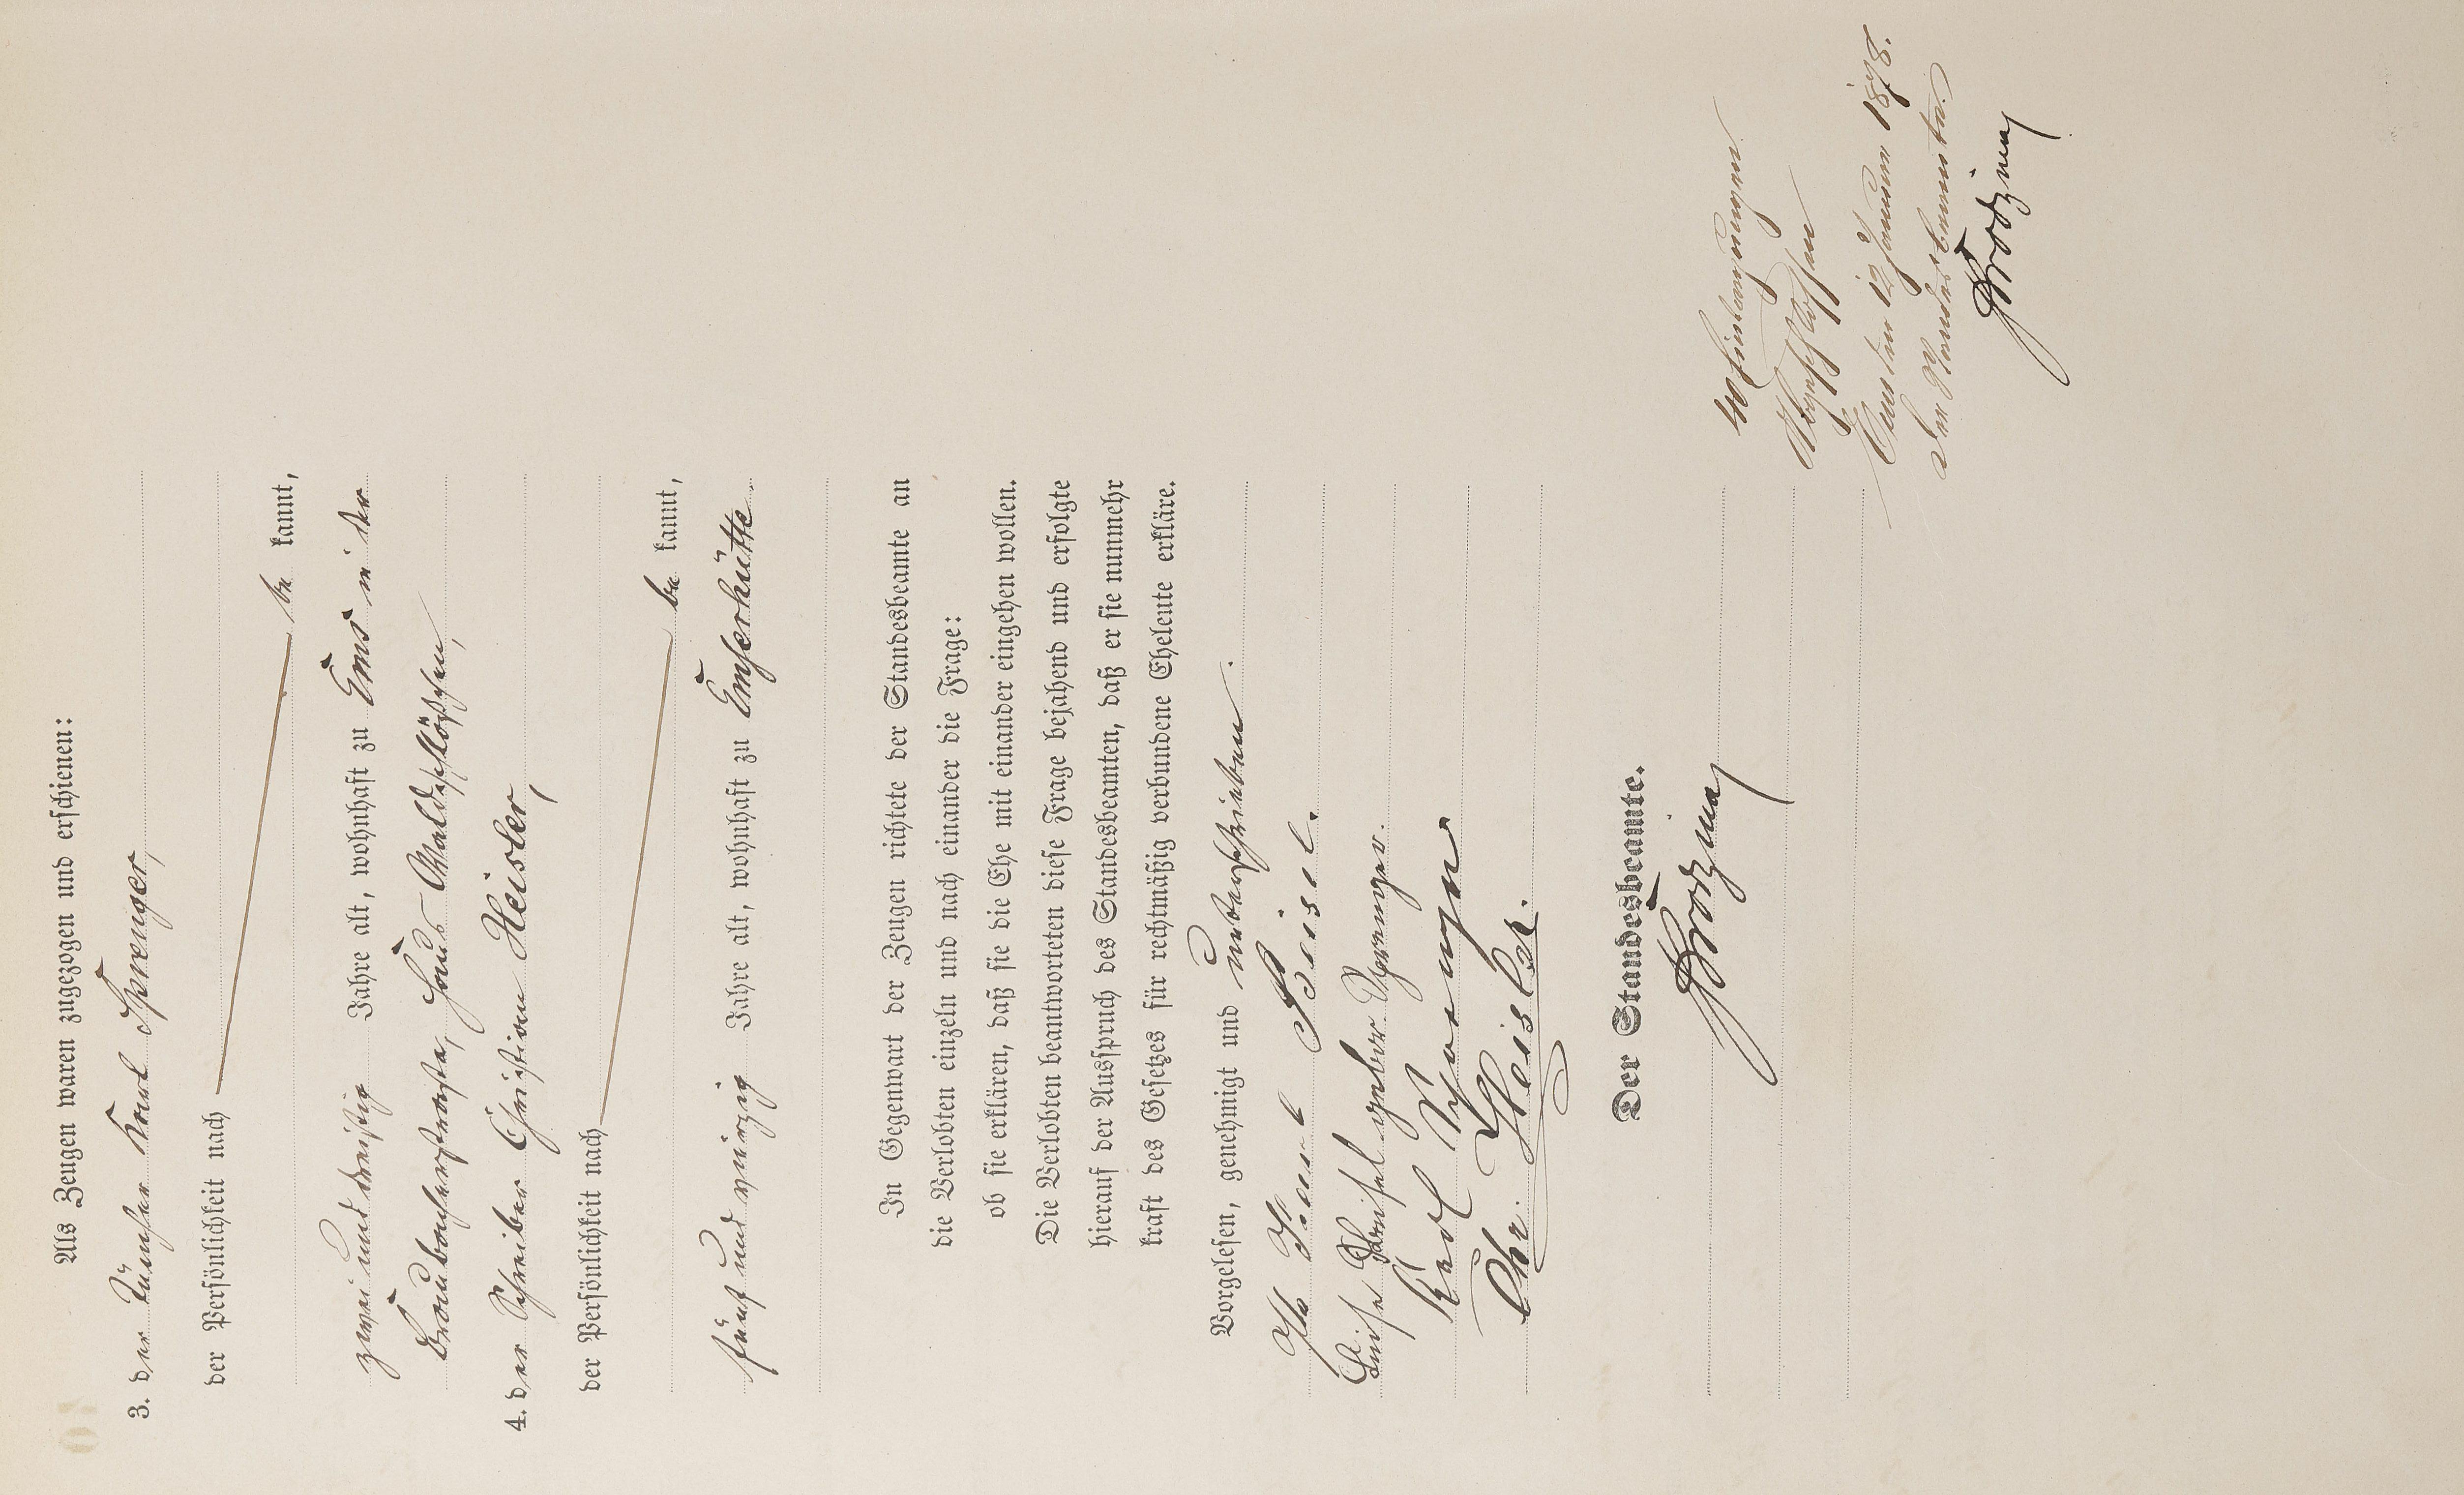 Als Zeugen waren zugezogen und erschienen:
3. der Tüncher Karl Sprenger,
der Persönlichkeit nach
be kannt,
zwei und dreißig Jahre alt, wohnhaft zu Ems in der
Braubacherstraße, Haus Waldschlößchen,
4. der Schreiber Christian Heisler,
der Persönlichkeit nach
be kannt,
fünf und vierzig Jahre alt, wohnhaft zu Emserhütte.
In Gegenwart der Zeugen richtete der Standesbeamte an
die Verlobten einzeln und nach einander die Frage:
ob sie erklären, daß sie die Ehe mit einander eingehen wollen.
Die Verlobten beantworteten diese Frage bejahend und erfolgte
hierauf der Ausspruch des Standesbeamten, daß er sie nunmehr
kraft des Gesetzes für rechtmäßig verbundene Eheleute erkläre.
Vorgelesen, genehmigt und unterschrieben.
Karl Beisel.
Luise Beisel geborne Sprenger.
Karl Sprenger
Chr. Heisler.
Der Standesbeamte.
40 Eintragungen
Abgeschlossen
Ems den 12 Januar 1878.
Der Standesbeamte.